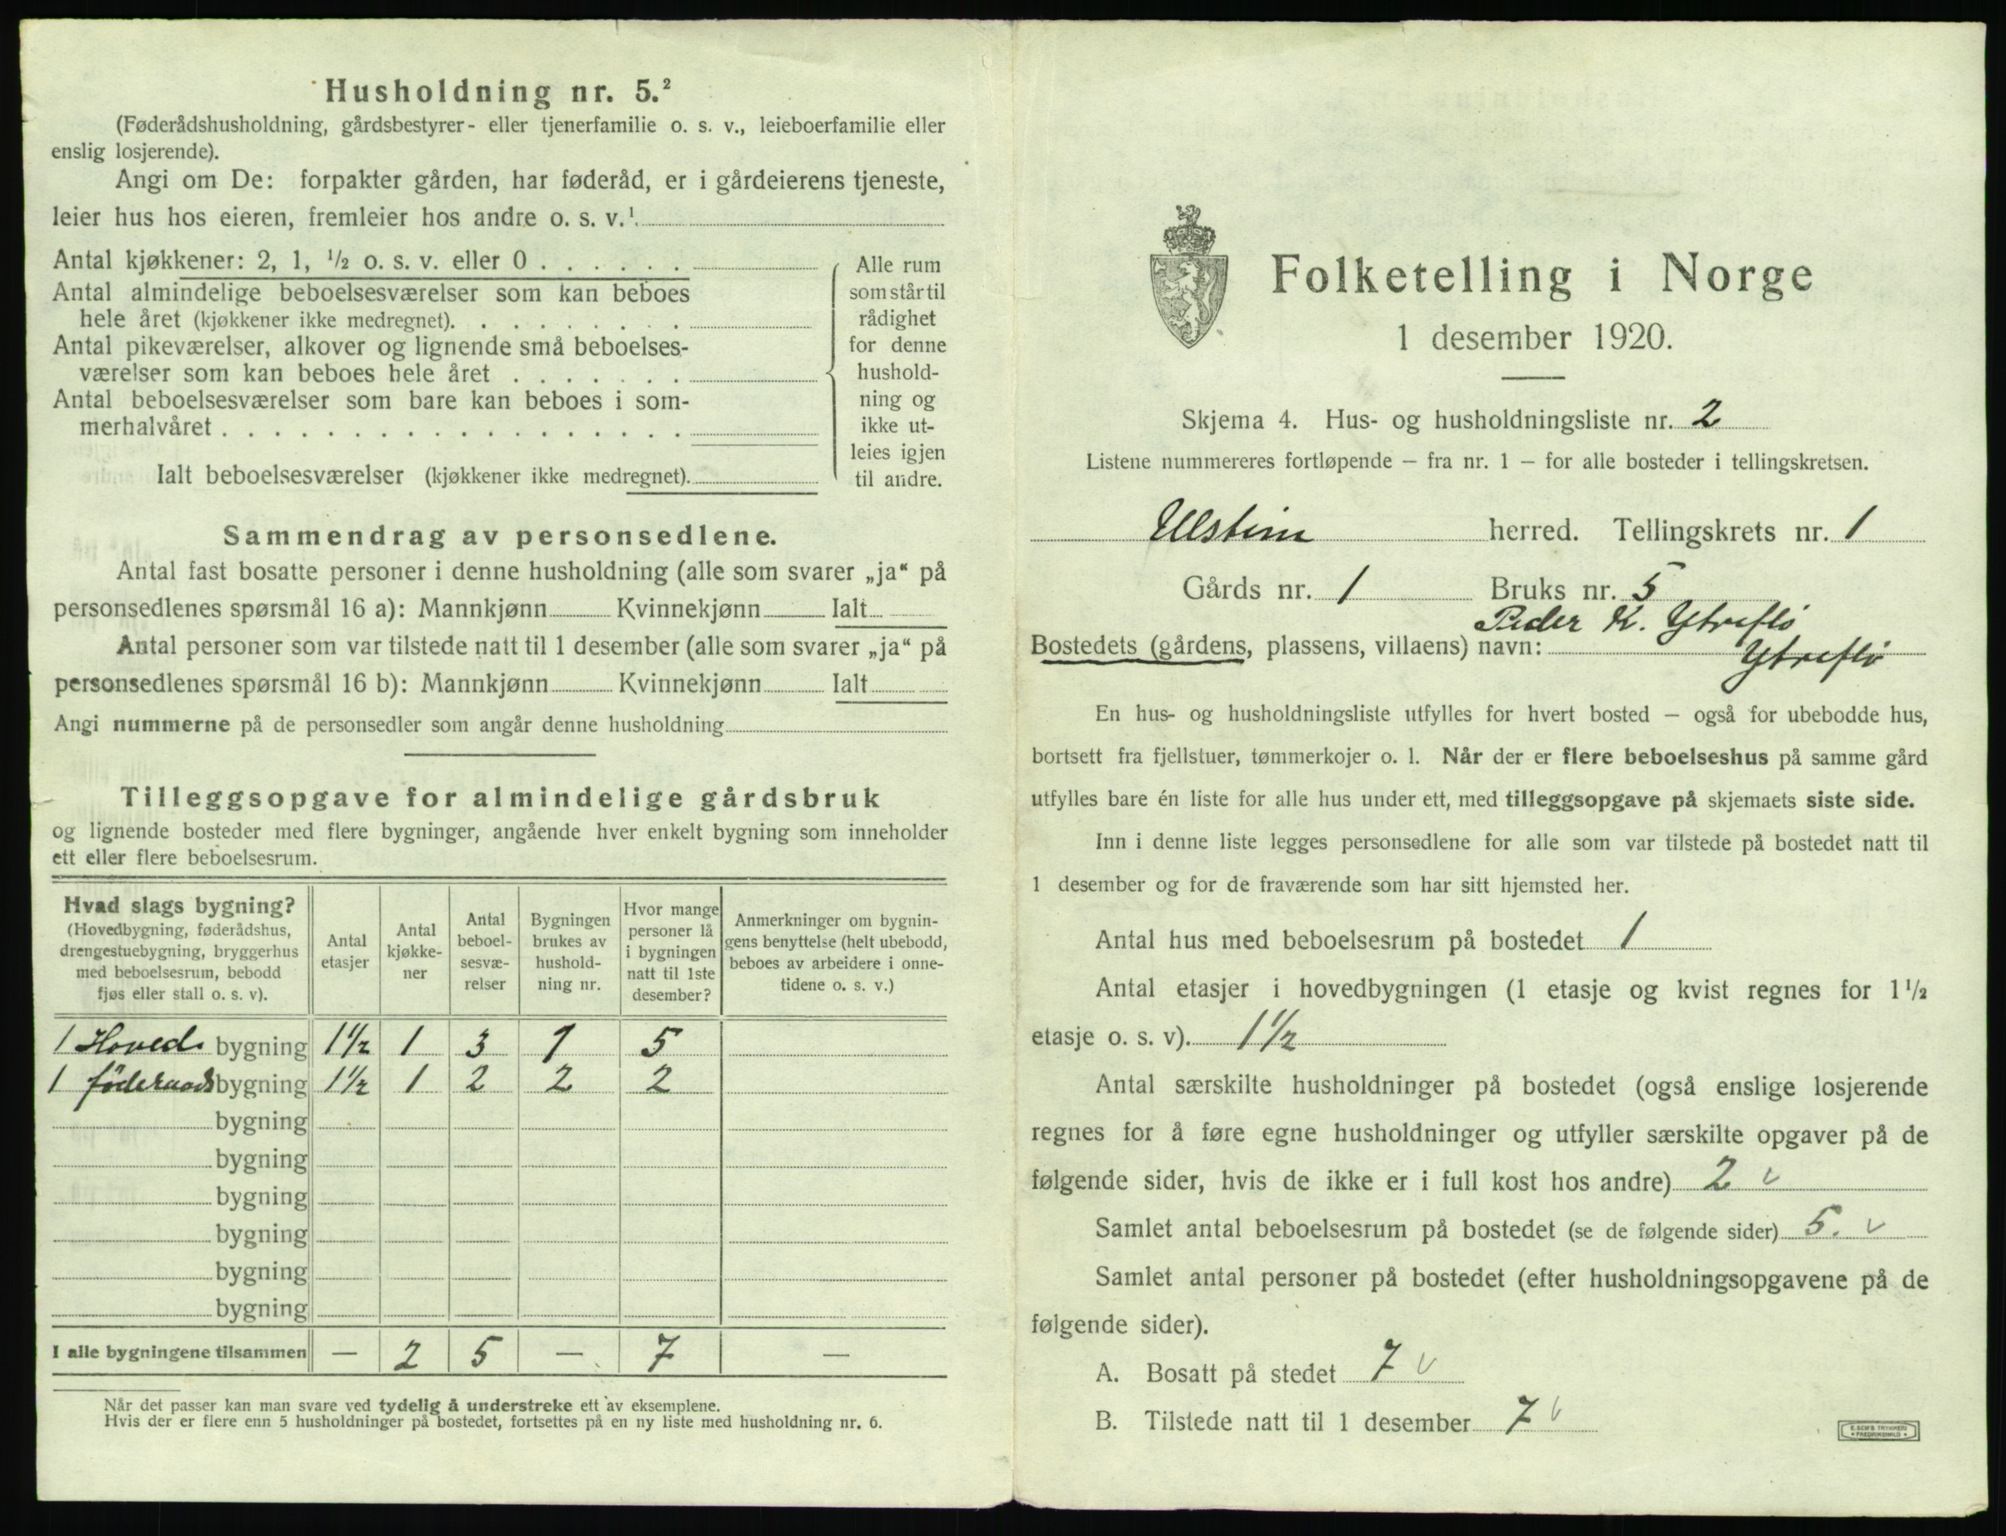 Husholdning nr. 5.²
(Føderådshusholdning, gårdsbestyrer- eller tjenerfamilie o. s. v., leieboerfamilie eller
enslig losjerende).
Angi om De: forpakter gården, har føderåd, er i gårdeierens tjeneste,
leier hus hos eieren, fremleier hos andre o. s. v.¹
Antal kjøkkener: 2, 1, ½ o. s. v. eller 0 . . . . . .
Antal almindelige beboelsesværelser som kan beboes
hele året (kjøkkener ikke medregnet). . . . . . . . .
Antal pikeværelser, alkover og lignende små beboelses-
værelser som kan beboes hele året . . . . . . .
Antal beboelsesværelser som bare kan beboes i som-
merhalvåret . . . . . . . . . . . . . . . . . .
Ialt beboelsesværelser (kjøkkener ikke medregnet).
Alle rum
som står til
rådighet
for denne
hushold-
ning og
ikke ut-
leies igjen
til andre.
Sammendrag av personsedlene.
Antal fast bosatte personer i denne husholdning (alle som svarer „ja“ på
personsedlenes spørsmål 16 a): Mannkjønn Kvinnekjønn Ialt
Antal personer som var tilstede natt til 1 desember (alle som svarer „ja“ på
personsedlenes spørsmål 16 b): Mannkjønn Kvinnekjønn Ialt
Angi nummerne på de personsedler som angår denne husholdning
Tilleggsopgave for almindelige gårdsbruk
og lignende bosteder med flere bygninger, angående hver enkelt bygning som inneholder
ett eller flere beboelsesrum.
Hvad slags bygning?
(Hovedbygning, føderådshus,
drengestuebygning, bryggerhus
med beboelsesrum, bebodd
fjøs eller stall o. s. v).
Antal
etasjer
Antal
kjøkke-
ner
Antal
beboel-
sesvæ-
relser
Bygningen
brukes av
hushold-
ning nr.
Hvor mange
personer lå
i bygningen
natt til 1ste
desember?
Anmerkninger om bygnin-
gens benyttelse (helt ubebodd,
beboes av arbeidere i onne-
tidene o. s. v.)
1 Hoved bygning 1½ 1 3 1 5
1 föderaads bygning 1½ 1 2 2 2
bygning
bygning
bygning
bygning
bygning
bygning
I alle bygningene tilsammen — 2 5 — 7 —
Når det passer kan man svare ved tydelig å understreke ett av eksemplene.
Hvis der er flere enn 5 husholdninger på bostedet, fortsettes på en ny liste med husholdning nr. 6.
Folketelling i Norge
1 desember 1920.
Skjema 4. Hus- og husholdningsliste nr. 2
Listene nummereres fortløpende — fra nr. 1 — for alle bosteder i tellingskretsen.
Ulstein herred. Tellingskrets nr. 1
Gårds nr. 1 Bruks nr. 5
Peder K. Ytreflö
Bostedets (gårdens, plassens, villaens) navn: Ytreflö
En hus- og husholdningsliste utfylles for hvert bosted — også for ubebodde hus,
bortsett fra fjellstuer, tømmerkojer o. l. Når der er flere beboelseshus på samme gård
utfylles bare én liste for alle hus under ett, med tilleggsopgave på skjemaets siste side.
Inn i denne liste legges personsedlene for alle som var tilstede på bostedet natt til
1 desember og for de fraværende som har sitt hjemsted her.
Antal hus med beboelsesrum på bostedet 1
Antal etasjer i hovedbygningen (1 etasje og kvist regnes for 1½
etasje o. s. v). 1½
Antal særskilte husholdninger på bostedet (også enslige losjerende
regnes for å føre egne husholdninger og utfyller særskilte opgaver på de
følgende sider, hvis de ikke er i full kost hos andre) 2 v
Samlet antal beboelsesrum på bostedet (se de følgende sider) 5. v
Samlet antal personer på bostedet (efter husholdningsopgavene på de
følgende sider).
A. Bosatt på stedet 7 v
B. Tilstede natt til 1 desember 7 v